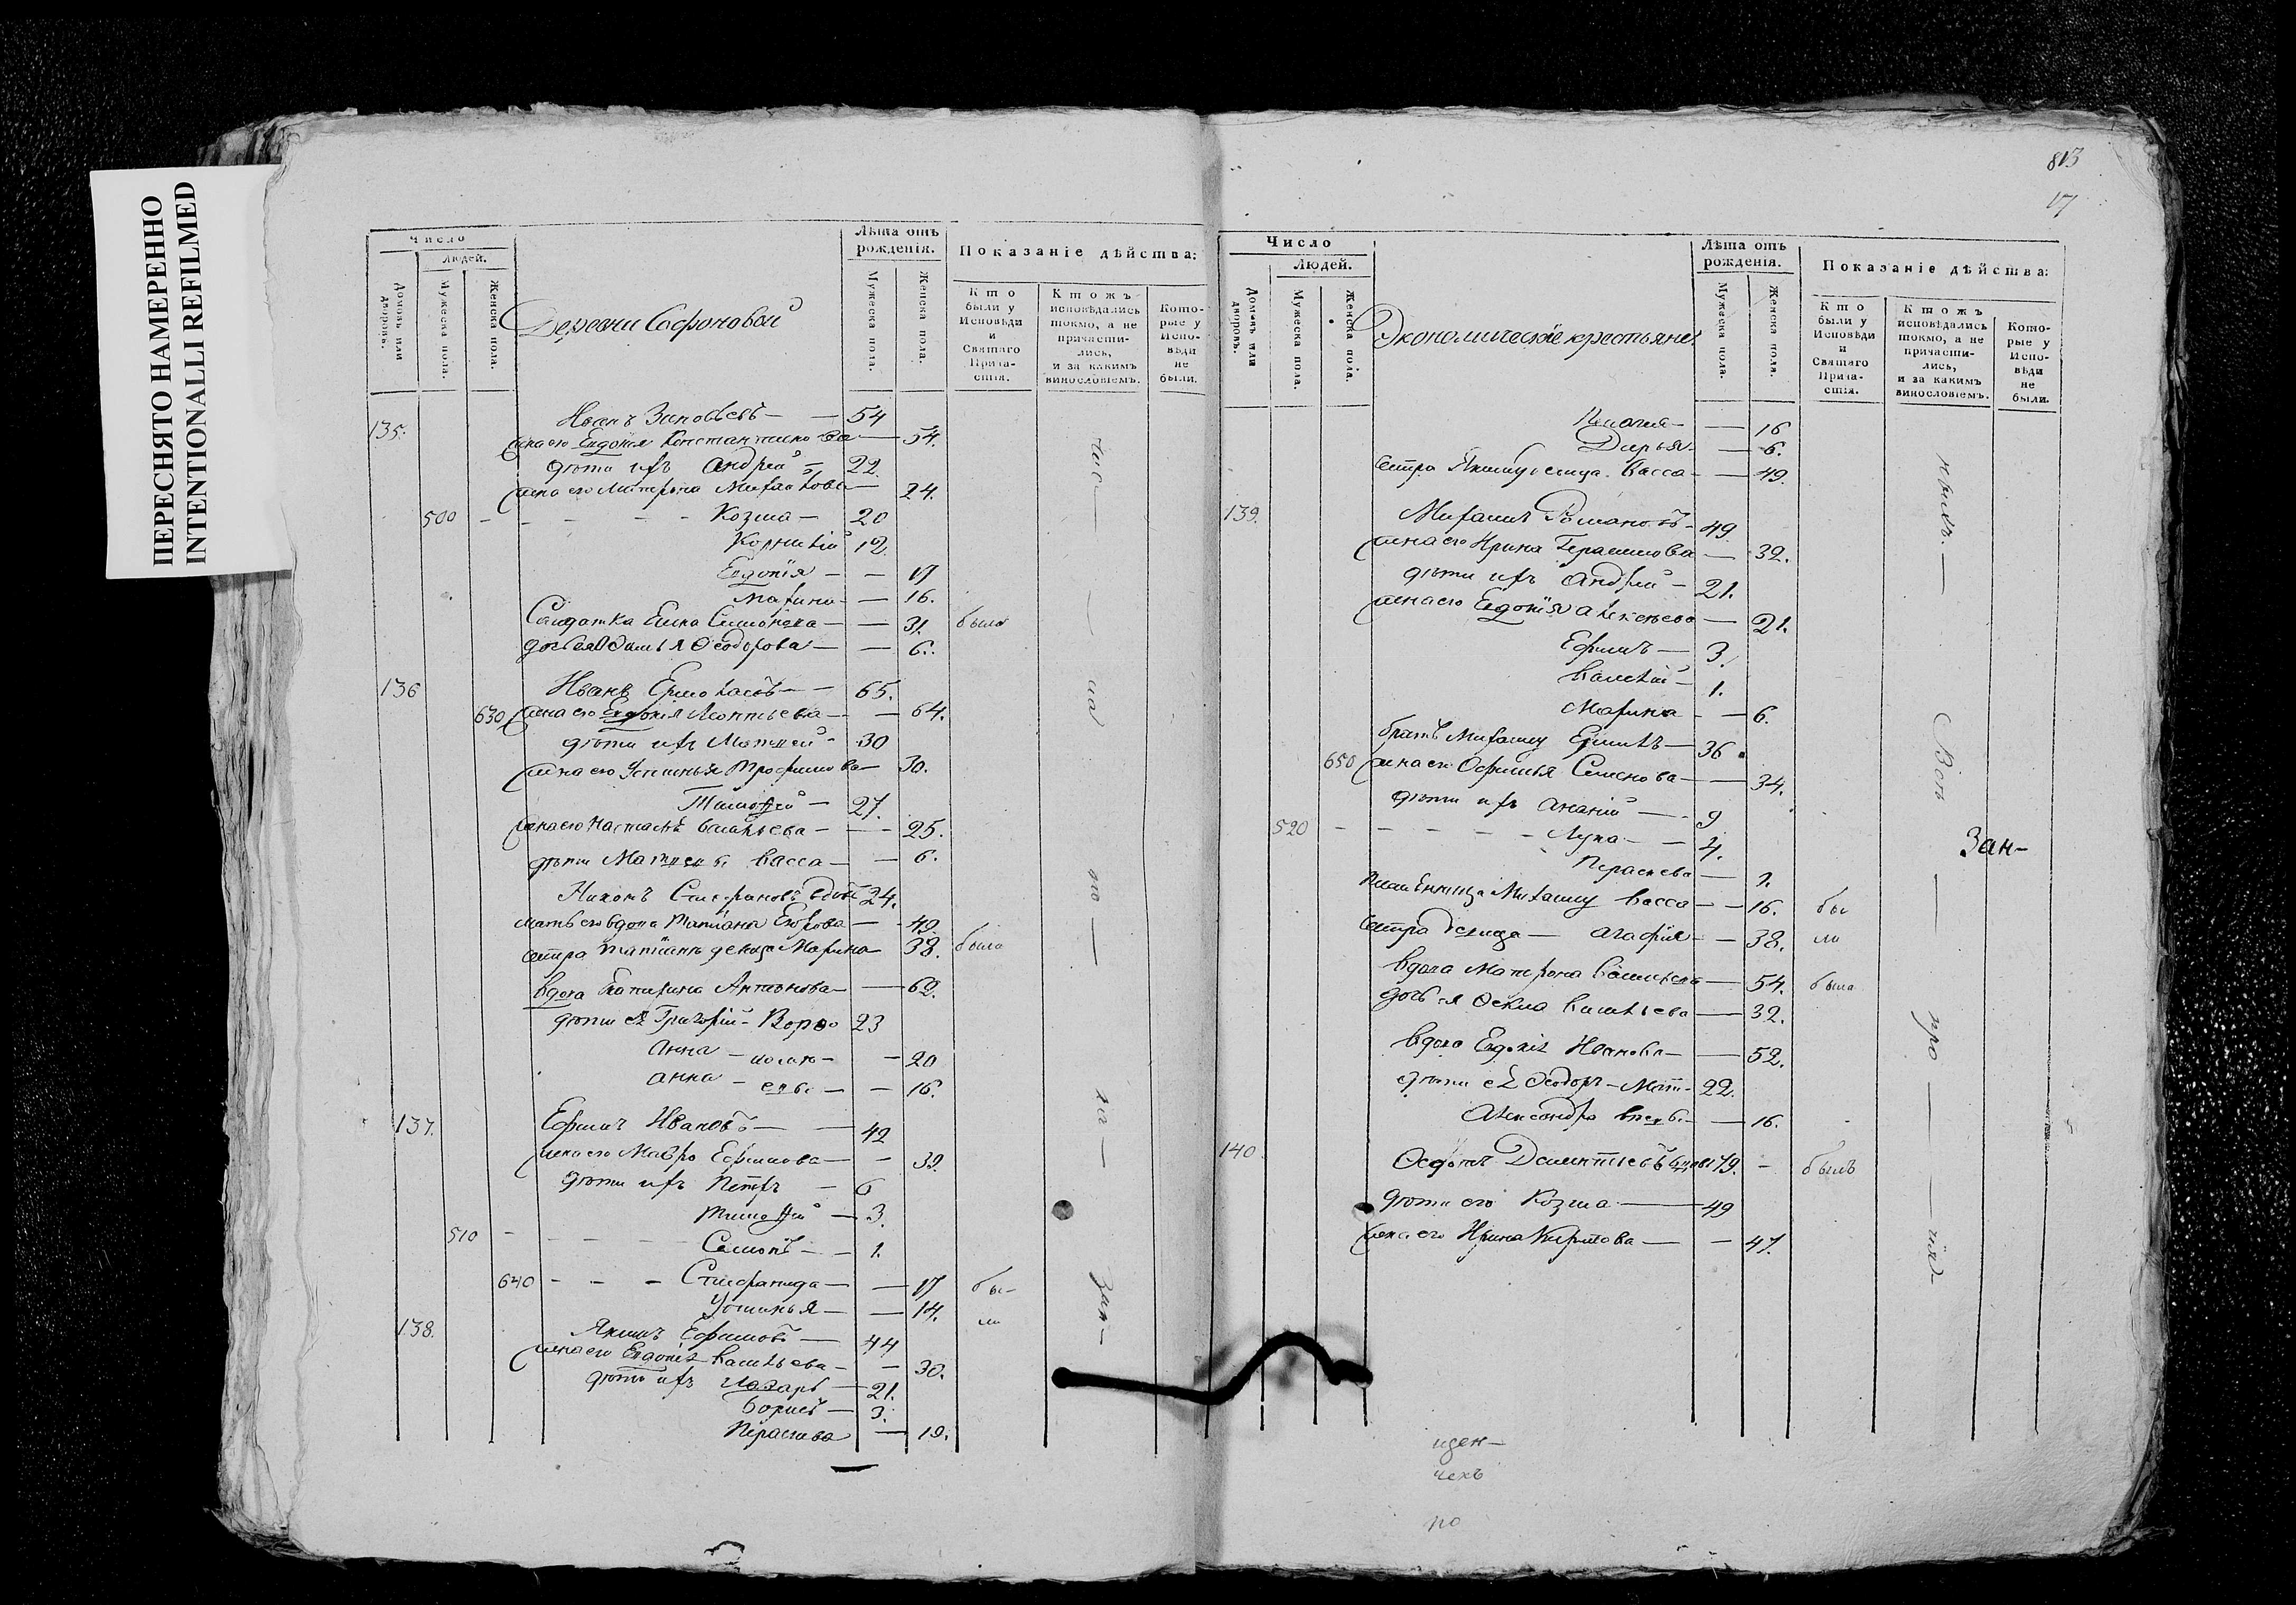 ПЕРЕСНЯТО НАМЕРЕННО
INTENTIONALLI REFILMED
813
17
Число
Людей.
Домовъ или дворовъ.
Мужеска пола.
Женска пола.
Деревни Сафоновой
Лѣта отъ рожденія.
Мужеска пола.
Женска пола.
Показаніе дѣйства:
Кто были у Исповѣди и Святаго Прича-стія.
Ктожъ исповѣдались токмо, а не причасти-лись, и за какимъ винословіемъ.
Кото-рые у Испо-вѣди не были.
135. Иванъ Зиновьевъ — 54
жена его Евдокія Константинова — 54.
дѣти ихъ Андрей — 22
жена его Матрона Михайлова — 24.
500 - - - - Козма — 20
Корнилій 12.
Евдокія — 17
Марина — 16.
Солдатка Елена Симонова — 31. была
дочь ея Ѳеодорова — 6.
136 Иванъ Ермолаевъ — 65.
630 жена его Евдокія Леонтьева — 64.
дѣти ихъ Матвей - 30
жена его Устинья Трофимова — 30.
Тимофей — 27.
жена его Настасья Васильева — 25.
дѣти Матвея Васса — 6.
Никонъ Стефановъ вдовъ 24.
мать его вдова Татиана Егорова — 49.
сестра Татианѣ девица Марина 38. была
вдова Катерина Антонова — 62.
дѣти ея Григорій - 23
Анна — 20
Анна — 16.
137. Ефимъ Ивановъ — 42
жена его Мавра Ефимова — 39.
дѣти ихъ Петръ — 6
Тимофей — 3.
510 - - - - Семенъ — 1.
640 - - - Стефанида — 17 бы-
Устинья — 14. ли
138. Якимъ Ефимовъ — 44
жена его Евдокія Васильева — 30.
дѣти ихъ Лазарь — 21.
Борисъ — 3.
Параскева — 19.
Число
Людей.
Домовъ или дворовъ.
Мужеска пола.
Женска пола.
Экономическіе крестьяне
Лѣта отъ рожденія.
Мужеска пола.
Женска пола.
Показаніе дѣйства:
Кто были у Исповѣди и Святаго Прича-стія.
Ктожъ исповѣдались токмо, а не причасти-лись, и за какимъ винословіемъ.
Кото-рые у Испо-вѣди не были.
Пелагея — 16
Дарья — 6.
сестра Якиму девица Васса — 49.
139. Михаилъ Романовъ — 49
жена его Ирина Герасимова — 32.
дѣти ихъ Андрей — 21.
жена его Евдокія Алексеева — 21.
Ефимъ — 3.
Василій — 1.
Марина — 6.
братъ Михаилу — 36
650 жена его Офимья Семенова — 34.
дѣти ихъ Ананій — 9
520 - - - - - Лука — 4.
Параскева — 1.
племянница Михаилу Васса — 16. бы
сестра девица — Агафія — 38. ли
вдова Матрона Васильева — 54. была
дочь ея Васильева — 32.
вдова Евдокія Иванова — 52.
дѣти ея Ѳеодоръ — 22.
Александра — 16.
140. Дементьевъ вдовъ 79. - былъ
дѣти его Козма — 49
жена его Ирина — 47.
Зан-